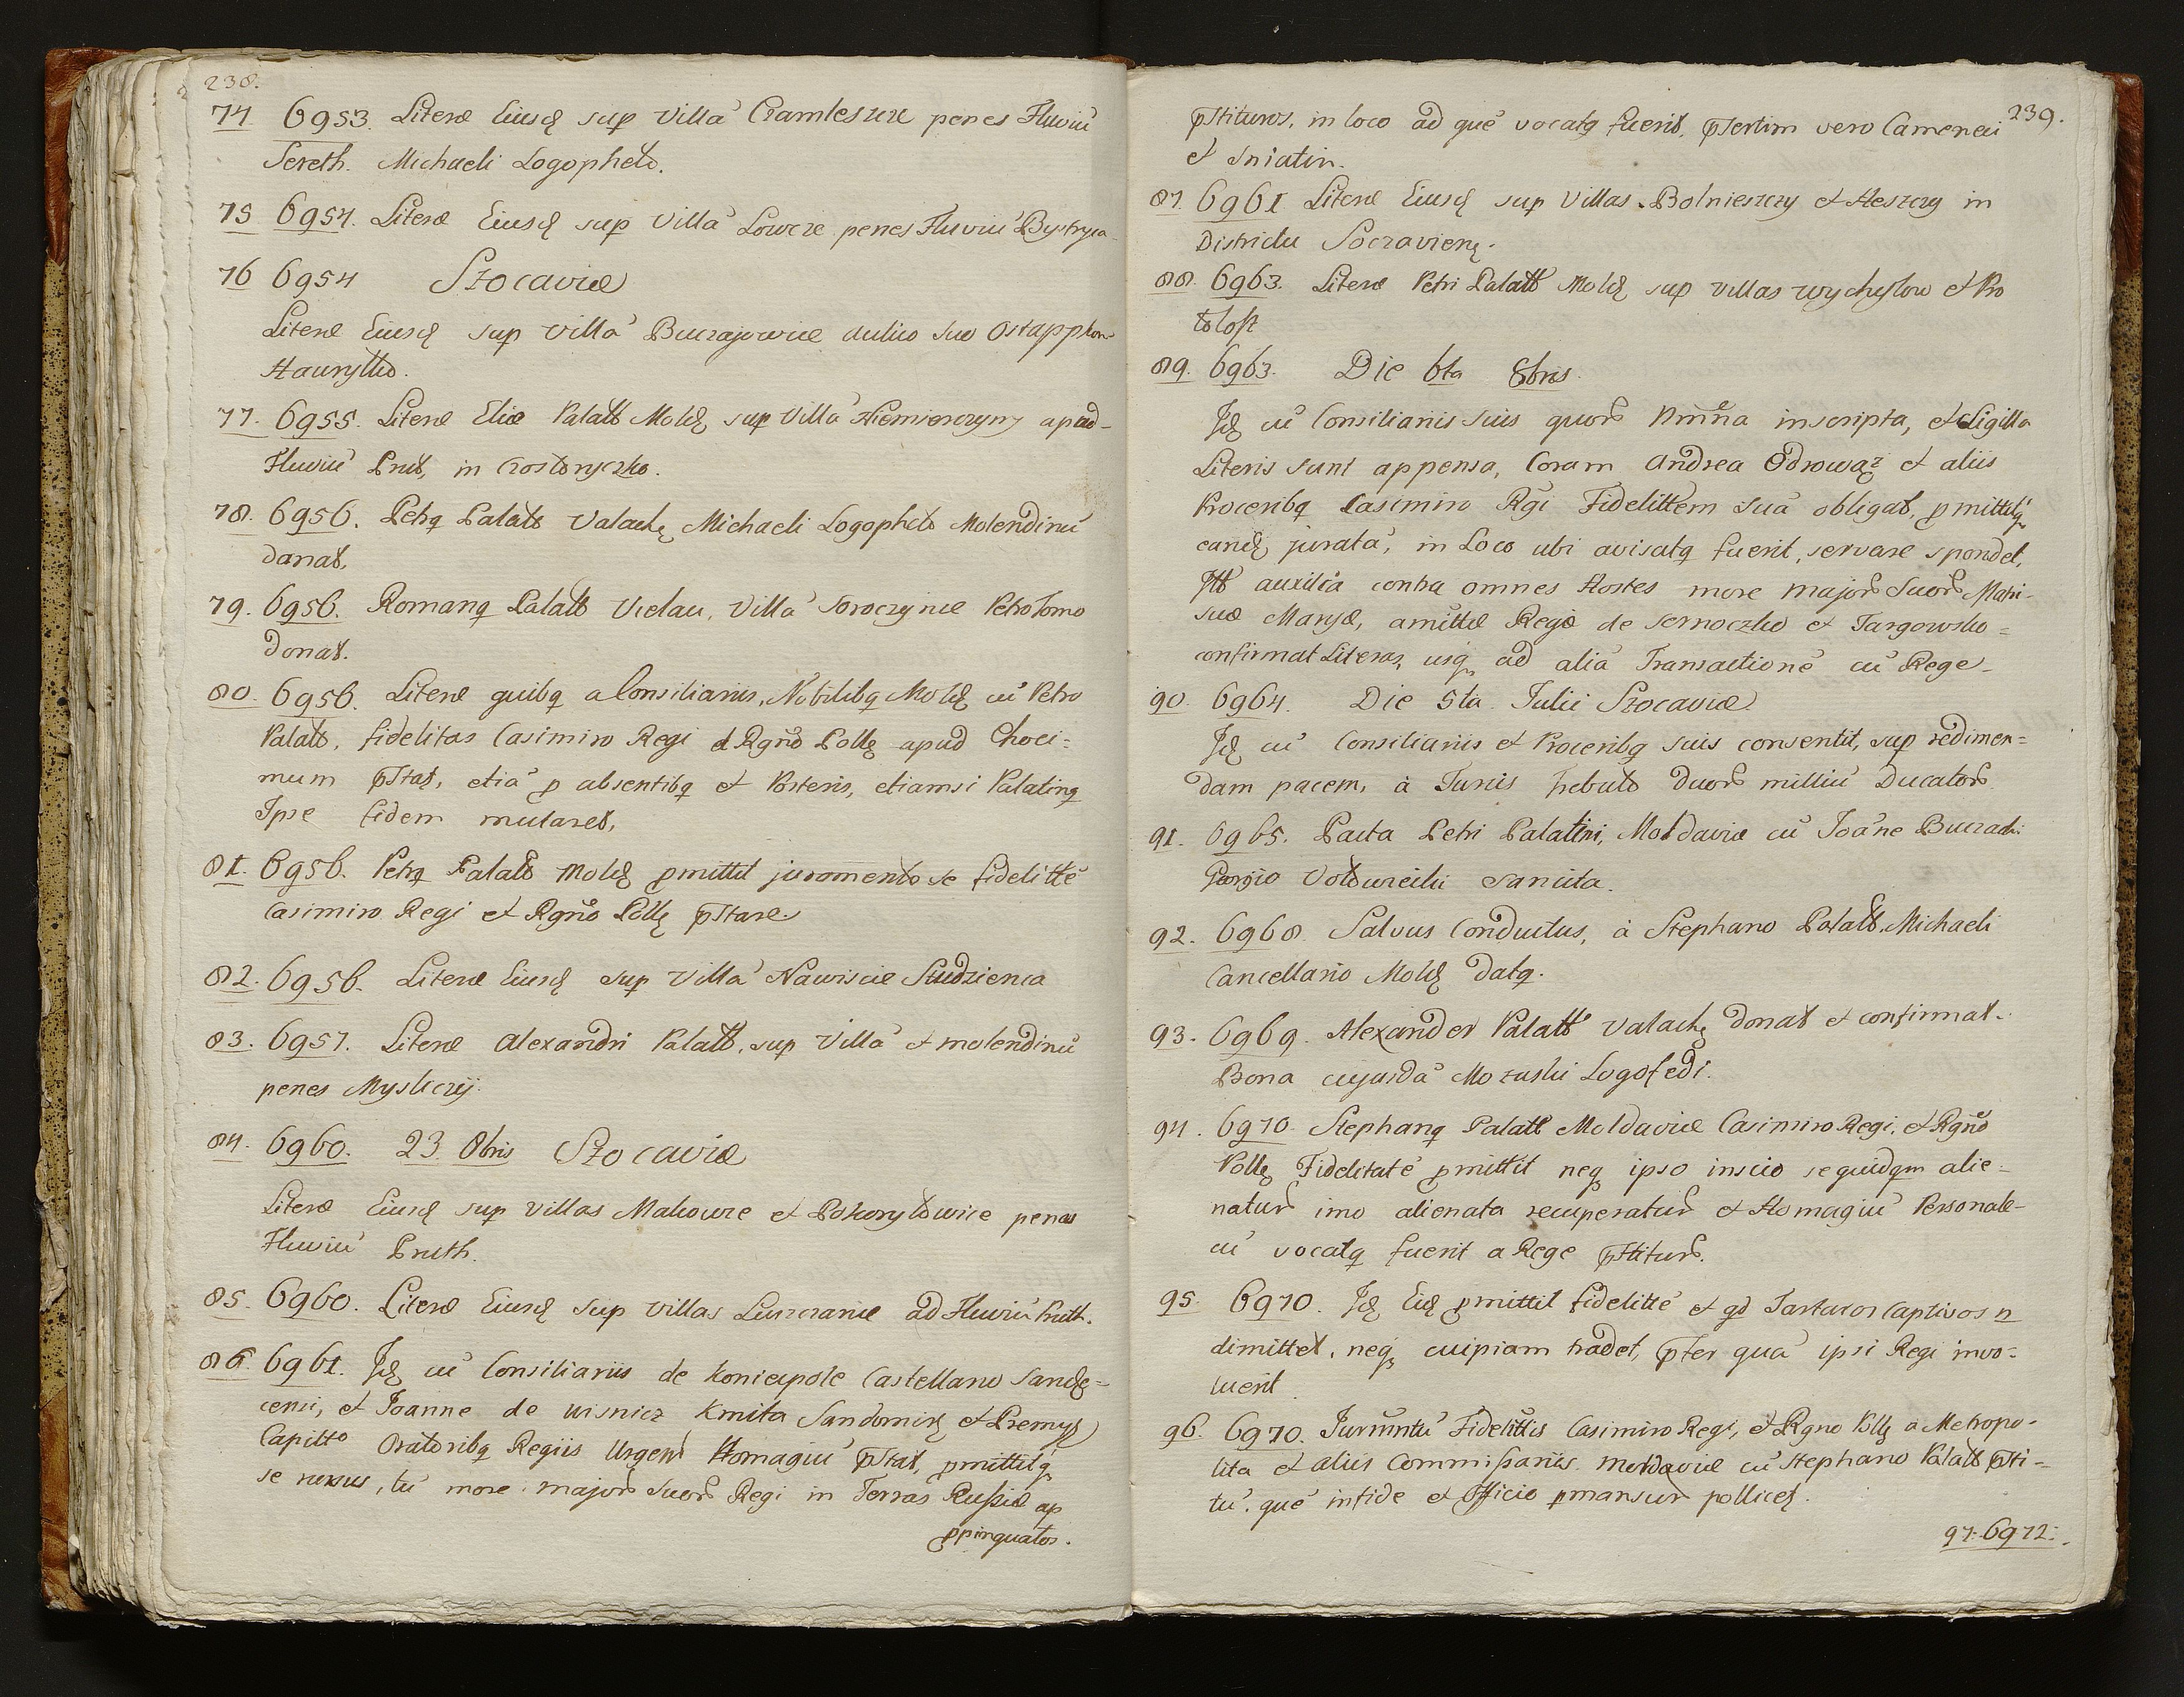 238.
74 6953. Literæ Eiusd sup villa Cramleszcze penes Fluviu
Sereth. Michaeli Logopheto.
75 6954. Literæ Eiusd sup villa Lowcze penes Fluviu Bystryca
76 6954 Szocaviæ
Literæ Eiusd sup villa Buczajowice aulico suo Ostapphon
Hauryłło.
77. 6955. Literæ Eliæ Palatt Mold sup villa Niemierczyny apud
Fluviu Prut, in Czostoryczko.
78. 6956. Petrq Palatt Valach Michaeli Logopheto Molendinu
donat.
79. 6956. Romanq Palatt villa Soroczynie Petro Tomo
donat.
80. 6956. Literæ quibq a Consiliariis, Nobilibq Mold cu Petro
Palatt, fidelitas Casimiro Regi et Rgno Pollæ apud Choci=
mum pstat, etia p absentibq et Posteris, etiamsi Palatinq
Ipse fidem mutaret.
81. 6956. Petrq Palatt Mold pmittit juramento se fidelitte
Casimiro Regi et Rgno Pollæ pstare.
82. 6956. Literæ Eiusd sup villa Nawiscie Studzienca
83. 6957. Literæ Alexandri Palatt. sup villa et molendinu
penes Mysliczij.
84. 6960. 23 8bris Szocaviæ
Literæ Eiusd sup villas Makowce et Pohorylowice penes
Fluviu Pruth.
85. 6960. Literæ Eiusd sup villas ad Fluviu Pruth.
86. 6961. Id cu Consiliariis de Koniecpole Castellano Sande=
censi, et Joanne de Wisnicz Kmita Sandomir et Premys
Capitto Oratoribq Regiis Urgen Homagiu pstat, pmittitq
se rursus, tu more major suor Regi in Terras Russiæ ap
ppinquatos.
239.
pstituros, in loco ad que vocatq fuerit, psertim vero Cameneci
et Sniatin.
87. 6961 Literæ Eiusd sup villas Bolnieszczy et Heszczy in
Districtu Soczavien.
88. 6963. Literæ Petri Palatt Mold sup villas Wychylow et Pro
tolosz
89. 6963. Die 6ta 8bris.
Id cu Consiliariis suis quor Nmna inscripta, et Sigilla
Literis sunt appensa, Coram Andrea Odrowąz et aliis
Proceribq Casimiro Rgi Fidelittem sua obligat, pmittitq
eand jurata, in Loco ubi avisatq fuerit, servare spondet,
Itt auxilia contra omnes Hostes more major suor, Matri
suæ Maryæ, amittæ Regiæ de Sernoczko et Targowsko=
confirmat Literas, usq ad alia Transactione cu Rege
90. 6964. Die 5ta. Julii Szocaviæ
Id cu Consiliariis et Proceribq suis consentit, sup redimen=
dam pacem, à Turcis tributo duor milliu Ducator
91. 6965. Pacta Petri Palatini, Moldaviæ cu Joane Buczacki
sancita.
92. 6968. Salvus Conductus, à Stephano Palatt. Michaeli
Cancellario Mold datq.
93. 6969. Alexander Palatt Valach donat et confirmat
Bona cujusda Mozuski Logofedi.
94. 6970. Stephanq Palatt Moldaviæ Casimiro Regi, et Rgno
Pollæ Fidelitate pmittit neq ipso inscio se quidqm alie=
natur imo alienata recuperatur et Homagiu Personale
cu vocatq fuerit a Rege pstitur.
95. 6970. Id Eid pmittit fidelitte et qd Tartaros captivos n
dimittet, neq cuipiam tradet, pter qua ipsi Regi invo=
luerit.
96. 6970. Jurmntu Fidelittis Casimiro Regi, et Rgno Pollæ a Metropo-
lita et aliis Commissariis Moldaviæ cu Stephano Palatt psti=
tu. que in fide et Officio pmansur pollicet.
97. 6972.